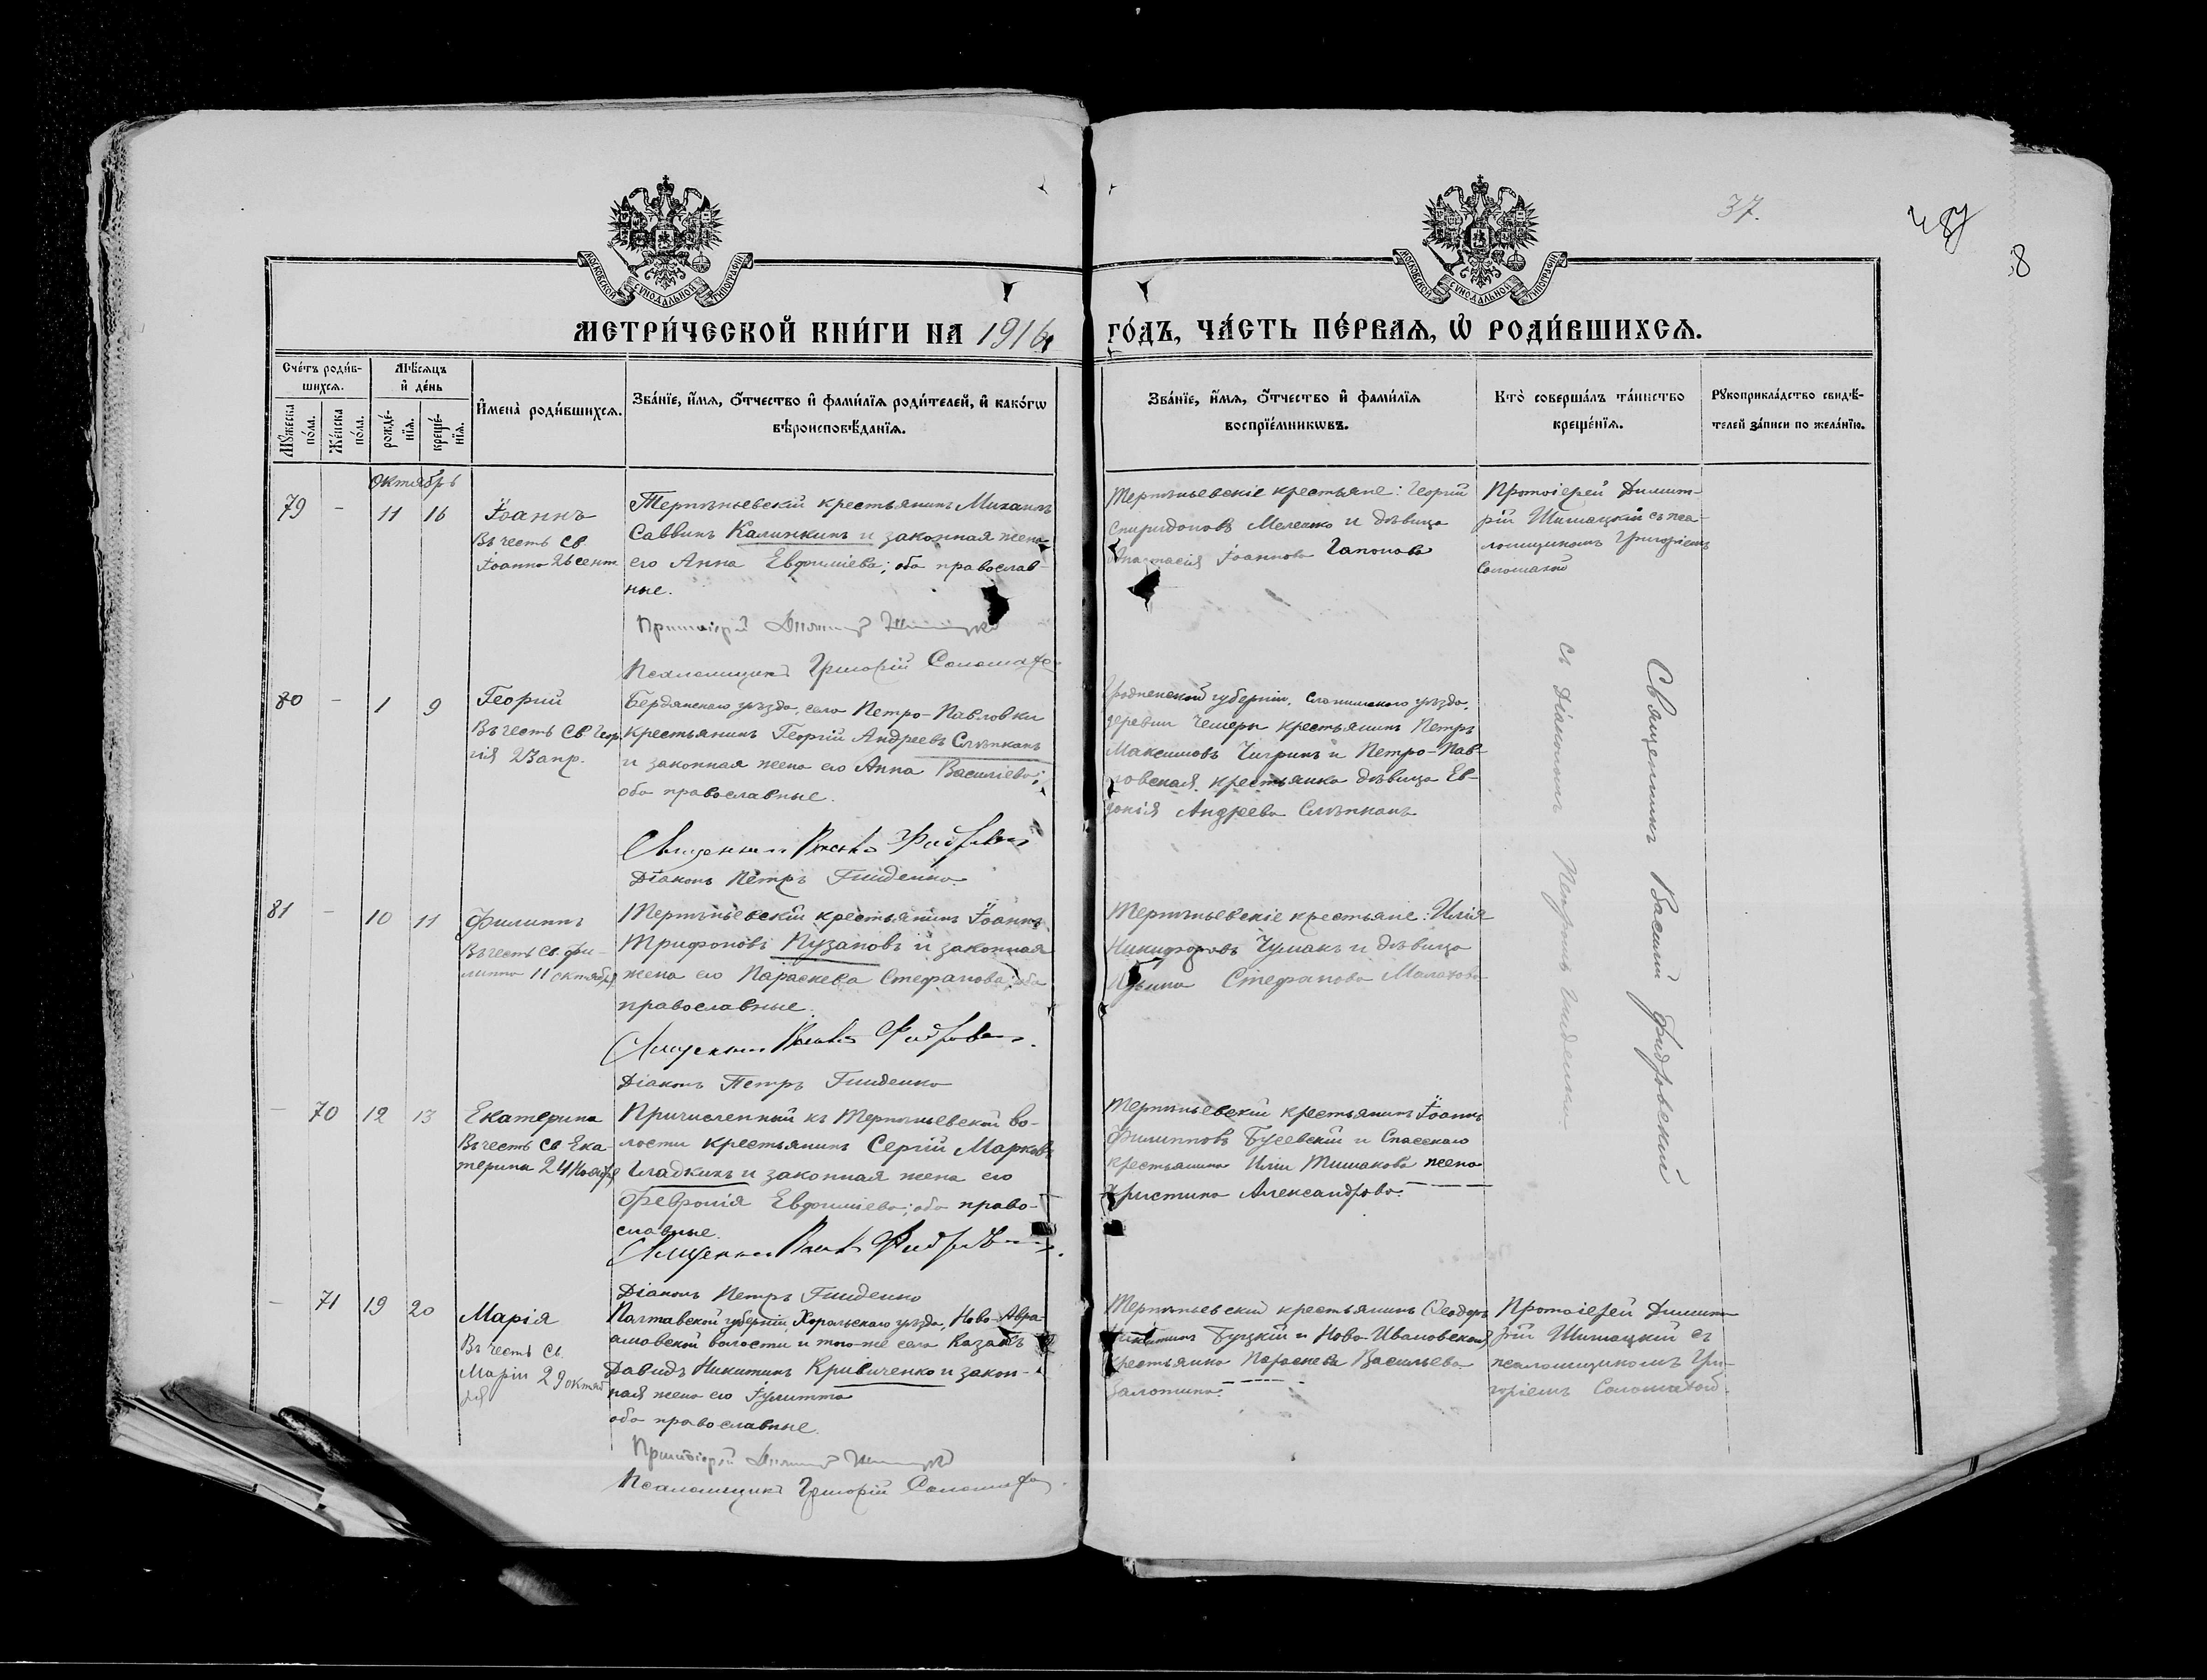 37.
МОСКОВСКОЙ СѴНОДАЛЬНОЙ ТИПОГРАФІИ
МОСКОВСКОЙ СѴНОДАЛЬНОЙ ТИПОГРАФІИ
МЕТРИ́ЧЕСКОЙ КНИ́ГИ НА 1916 ГО́ДЪ, ЧА́СТЬ ПЕ́РВАѦ, Ѡ РОДИ́ВШИХСѦ.
Счетъ роди́в-
шихсѧ.
Мꙋжеска
по́ла.
Же́нска
по́ла.
Мѣ́сѧцъ
и҆ де́нь
рожде́-
нїѧ.
креще́-
нїѧ.
И҆мена̀ роди́вшихсѧ.
Зва́нїе, и҆́мѧ, о҆́тчество и҆ фами́лїѧ роди́телей, и҆ како́гѡ
вѣроисповѣ́данїѧ.
Зва́нїе, и҆́мѧ, о҆́тчество и҆ фами́лїѧ
воспрїе́мникѡвъ.
Кто̀ соверша́лъ та́инство
креще́нїѧ.
Рꙋкоприкла́дство свидѣ́-
телей за́писи по жела́нїю.
октябрь
79 - 11 16
Іоаннъ
Въ честь Св.
Іоанна 26 сент
Терпѣньевскій крестьянинъ Михаилъ
Саввинъ Калинкинъ и законная жена
его Анна Евфиміева; оба православ-
ные.
Протоіерей
Псаломщикъ Григорій Соломаха
Терпѣньевскіе крестьяне: Георгій
Спиридоновъ Мелешко и дѣвица
Анастасія Іоаннова Гапонова
Протоіерей Димит-
рій Шишацкій съ пса-
ломщикомъ Григоріемъ
Соломахой
80 - 1 9
Георгій
Въ честь Св Геор
гія 23 апр.
Бердянскаго уѣзда, села Петро-Павловки
крестьянинъ Георгій Андреевъ Слѣпканъ
и законная жена его Анна Василіева;
оба православные.
Священникъ
Діаконъ Петръ Гниденко
Гродненской губерніи, Слонимскаго уѣзда,
деревни Чемеры крестьянинъ Петръ
Максимовъ Чигринъ и Петро-Пав-
ловская крестьянка дѣвица Ев-
докія Андреева Слѣпканъ
Священникъ Василій
съ Діакономъ Петромъ Гниденко
81 - 10 11
Филиппъ
Въ честь Св. Фи-
липпа 11 октября
Терпѣньевскій крестьянинъ Іоаннъ
Трифоновъ Пузановъ и законная
жена его Параскева Стефанова; оба
православные.
Священникъ
Діаконъ Петръ Гниденко
Терпѣньевскіе крестьяне: Илія
Никифоровъ Чумакъ и дѣвица
Стефанова Малахова
- 70 12 13
Екатерина
Въ честь Св Ека-
терины 24 Ноября
Причисленный къ Терпѣньевской во-
лости крестьянинъ Сергій Марковъ
Гладкихъ и законная жена его
Февронія Евфиміева; оба право-
славные.
Священникъ
Діаконъ Петръ Гниденко
Терпѣньевскій крестьянинъ Іоаннъ
Филипповъ Бусевскій и Спасскаго
крестьянина Иліи Тишакова жена
Христина Александрова.
- 71 19 20
Марія
Въ честь Св.
Маріи 29 октяб
ря
Полтавской губерніи, Хорольскаго уѣзда, Ново-Авра-
амовской волости и того-же села Казакъ
Давидъ Никитинъ Кривиченко и закон-
ная жена его Іулитта
оба православные.
Протоіерей
Псаломщикъ Григорій Соломаха
Терпѣньевскій крестьянинъ Ѳеодоръ
Никитинъ Буцкій и Ново-Ивановской
крестьянка Параскева Васильева
Заломина.
Протоіерей Димит-
рій Шишацкій съ
псаломщикомъ Гри-
горіемъ Соломахой.